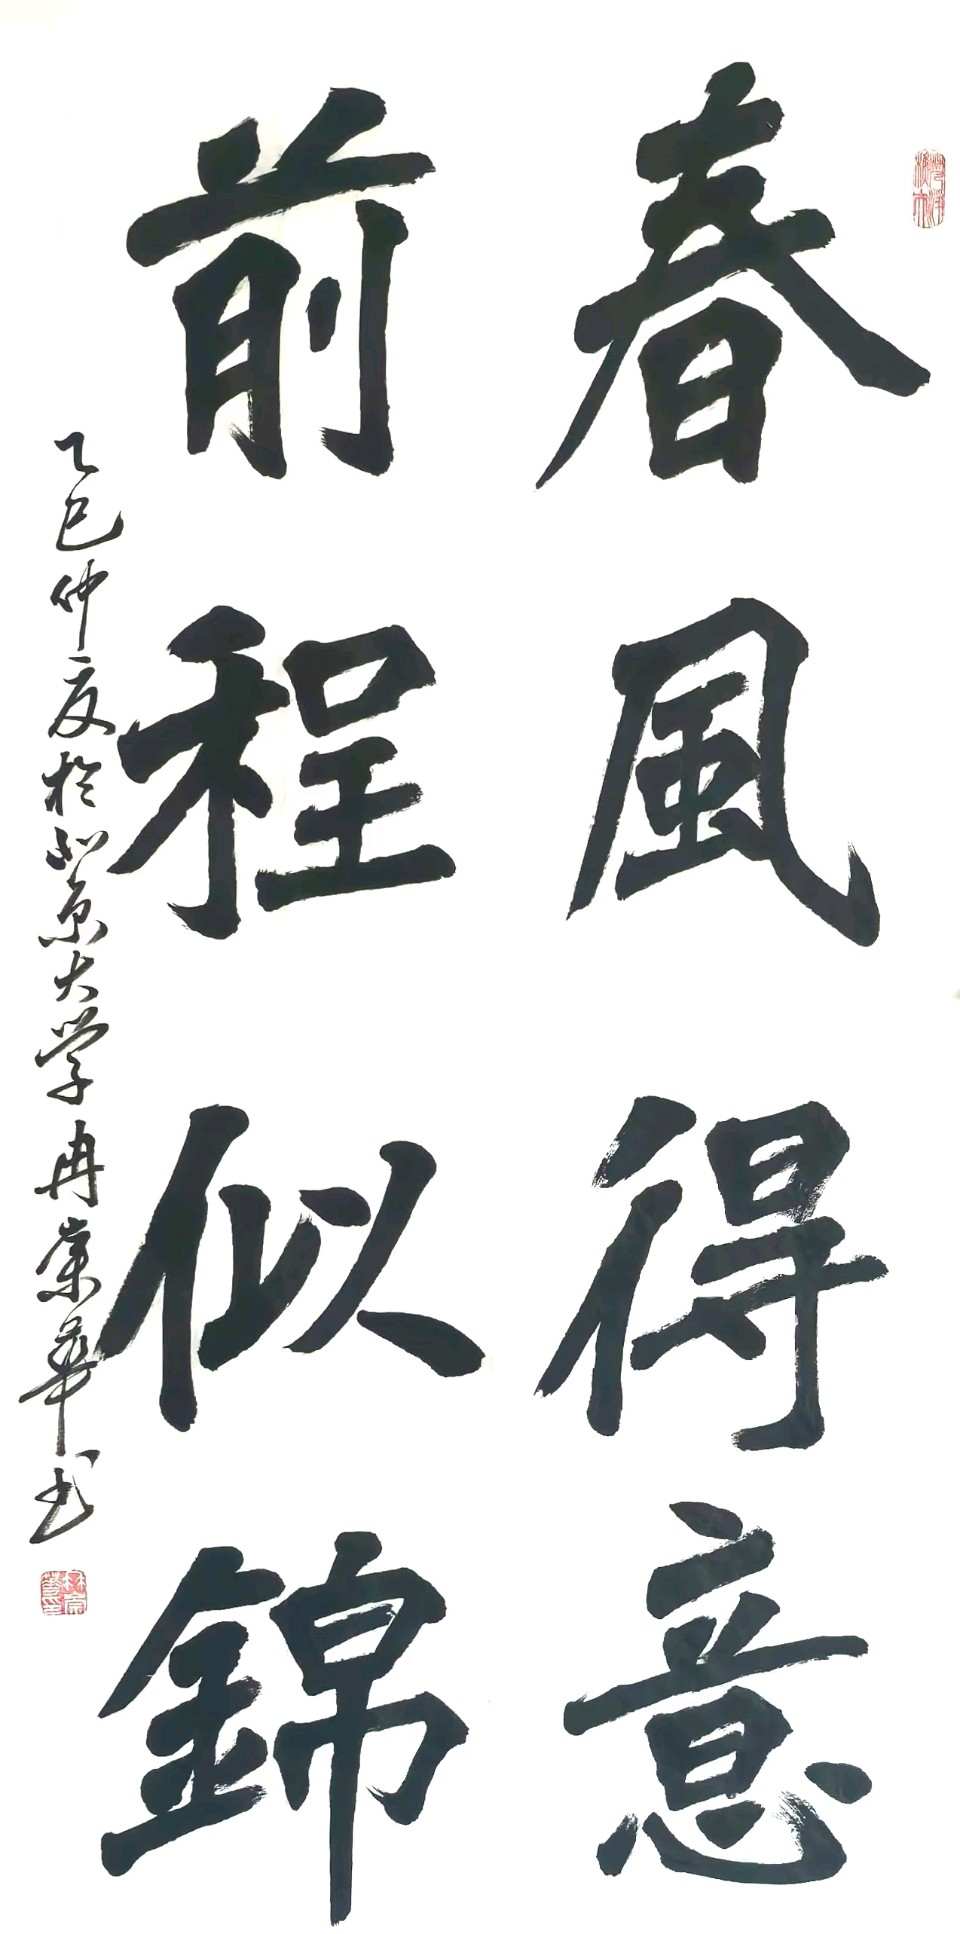 春風得意
前程似錦
乙巳仲夏於北京大学冉崇華书